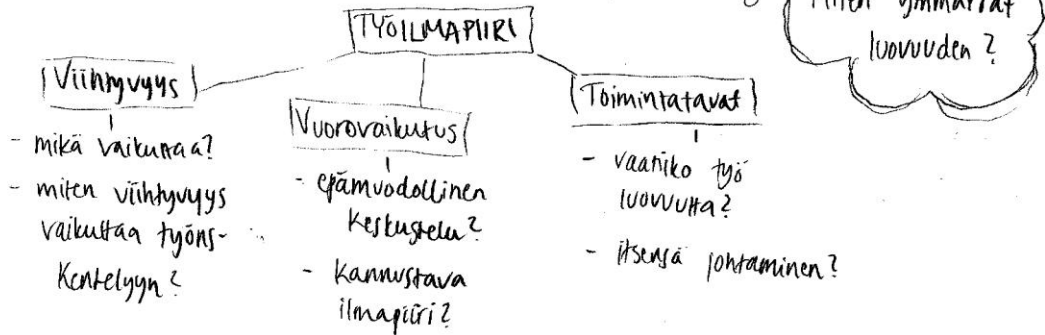 Miten ymmärrät
luovuuden?
TYÖILMAPIIRI
Viihtyvyys
- mikä vaikuttaa?
- miten viihtyvyys
vaikuttaa työns-
kentelyyn?
Vuorovaikutus
- epämuodollinen
keskustelu?
- kannustava
ilmapiiri?
Toimintatavat
- vaatiiko työ
luovuutta?
- itsensä johtaminen?